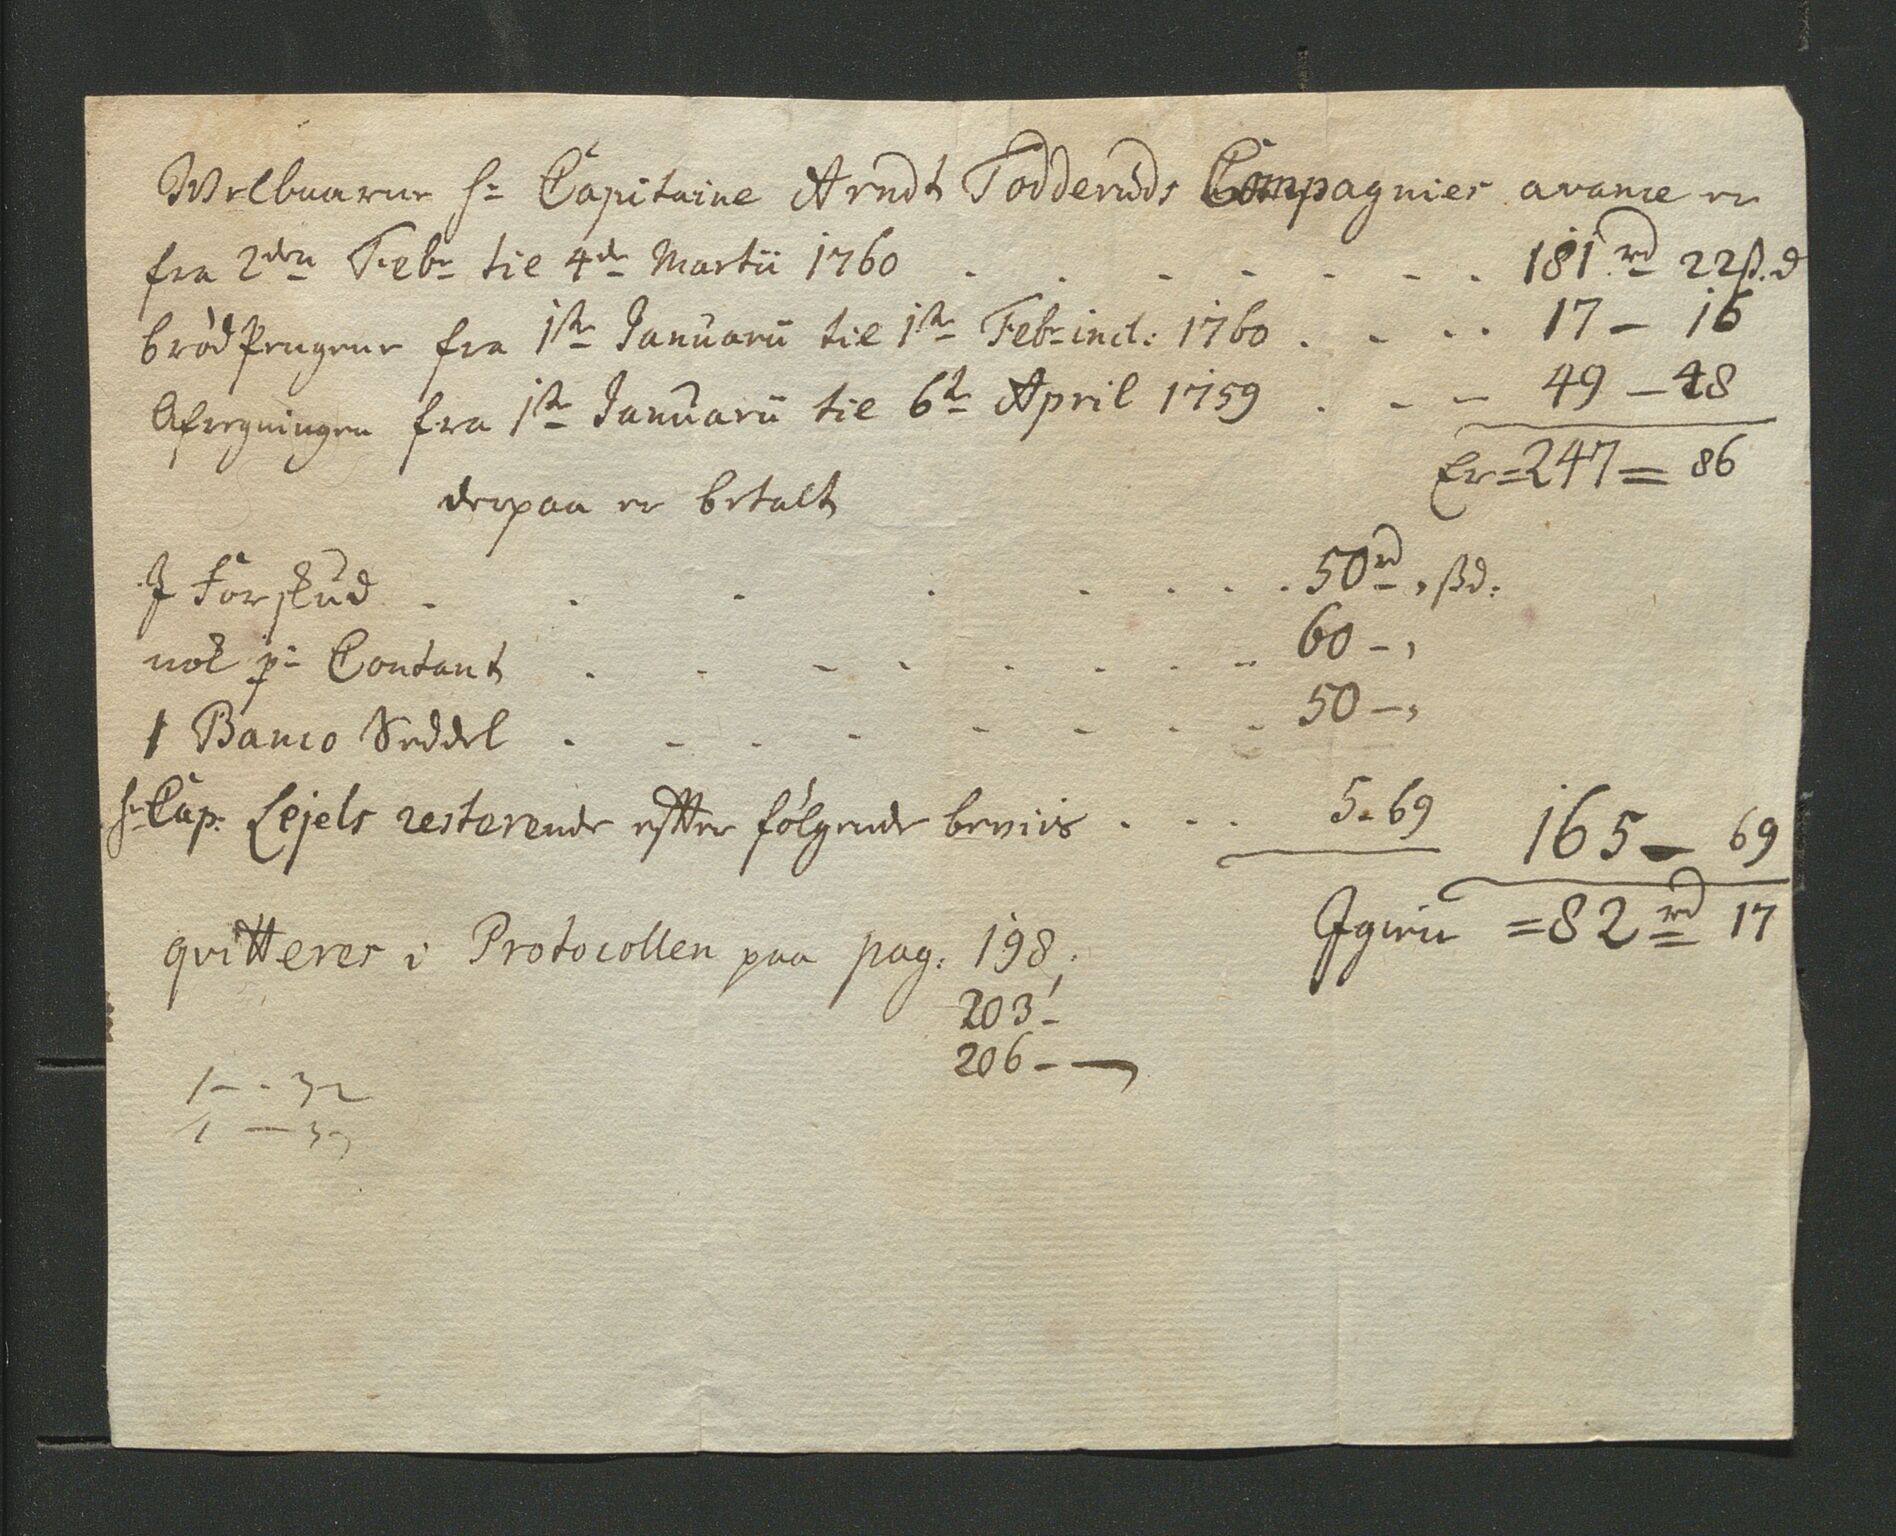 Welbaarne hr Capitaine Arndt Todderuds Compagnies avance er
fra 2den Febr: til 4de Martii 1760 . . . . . . 181 rd 22 ß. d
brød Pengene fra 1ste Januarii til 1ste Febr: incl: 1760 . . . . 17 - 16
Afregningen fra 1ste Januarii til 6te April 1759 . . - 49 - 48
Er = 247 = 86
derpaa er betalt
J Forskud . . . . . . . . 50 rd , ßd:
nok pr Contant . . . . . . . . 60 - ,
1 Banco Seddel . . . . . . . . 50 - ,
hr Cap: Lejels resterende efter følgende beviis . . . 5 - 69 165 - 69
Igien = 82 rd 17
qvitteres i Protocollen paa pag: 198,
203 -
206 -
1 - - 32
1 - 32